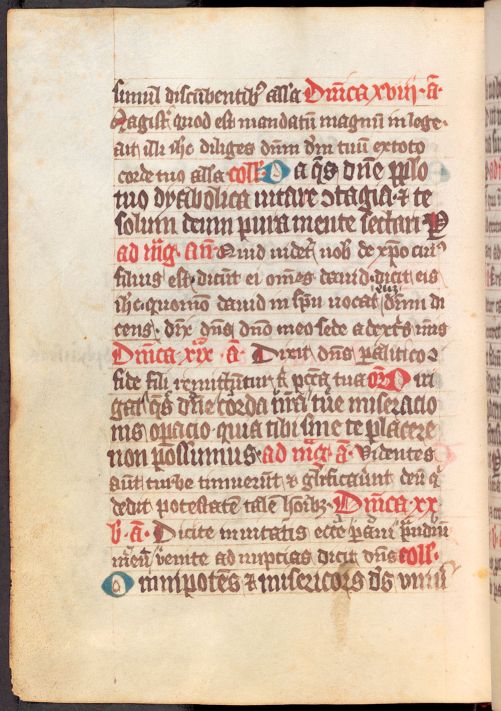 simul discūbentibꝰ alla Dn̄ica xviii · a̅ ·
Magist̄ quod est mandatū magnū in lege ·
ait illi ihc diliges dn̄m dm̄ tuū ex toto
corde tuo alla coll̄ · Da q̄s dn̄e pplo
tuo dyabolica uitare ↄtagia · ⁊ te
solum deum pura mente sectari P
ad m̄g · an̄ · Quid uidet̄ uob̄ de xp̄o cuiꝰ
filius est · dicūt ei om̄es dauid · dicit eis
ihc · quomō dauid in sp̄u uocat eū dn̄m di
cens · dix̄ dn̄s dn̄o meo sede a dextris meis
Dn̄ica xix · a̅ · Dixit dn̄s palitico ↄ
fide fili remittūtur t̄ pccā tua or̄ Diri
gat q̄s dn̄e corda nr̄a tue miseratio
nis opacio · quia tibi sine te placere
non possumus · ad m̄g · a̅ · Videntes
aut̄ turbe timuerūt ⁊ glificauūt deū q̄
dedit potestatē talē hoībꝫ · Dn̄ica xx
b · a̅ · Dicite inuitatis ecce pāui prandiū
meū uenite ad nuptias dicit dn̄s coll̄ ·
Omnipotēs ⁊ misericors ds̄ uniu